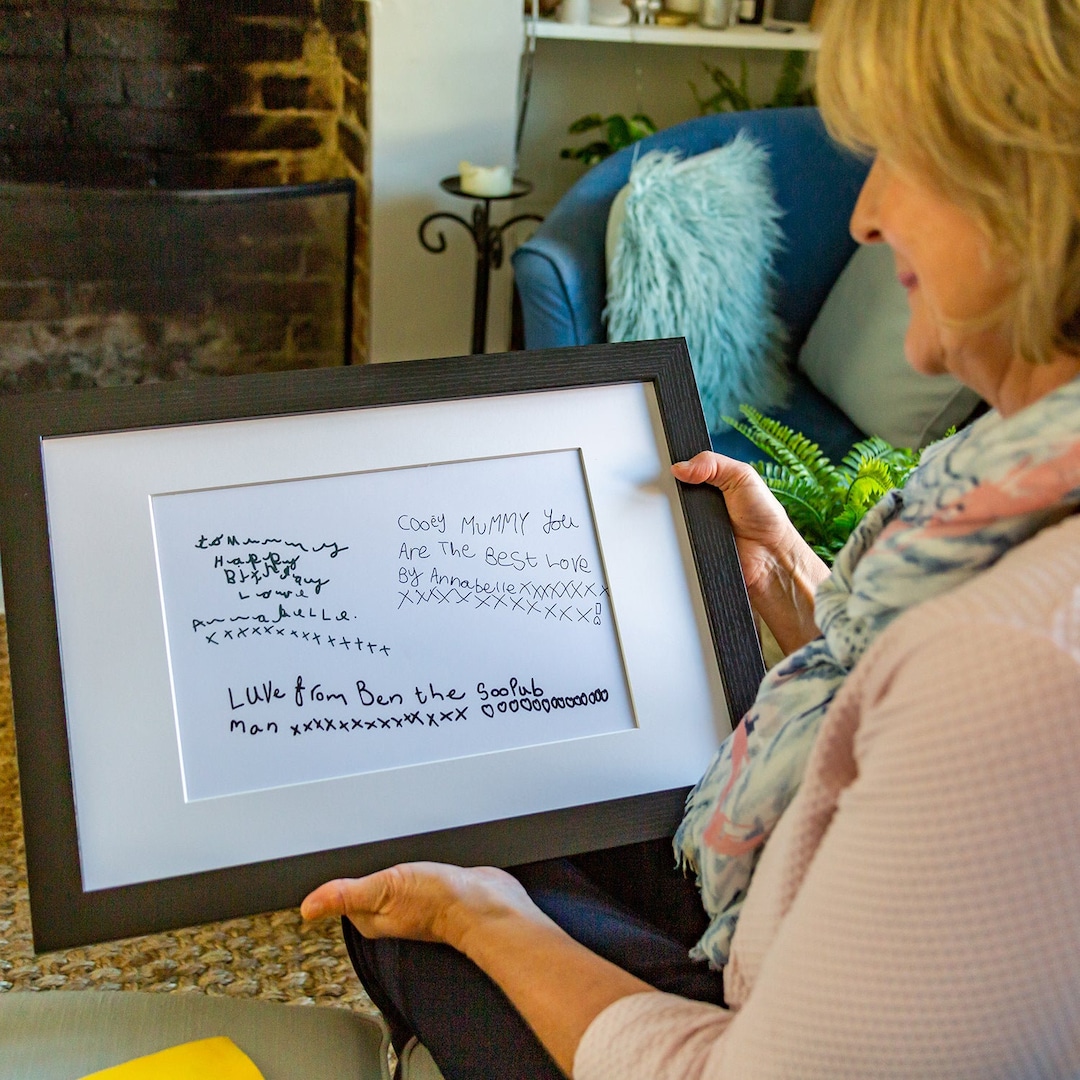 to Mummy
Happy
Bixfegy
Love
Annabelle.
xxxxxxxxx++++
Cooey MUMMY You
Are The Best Love
By Annabelle xxxxxxx
xxxxxxxxxxxx!
Luve from Ben the Soopub
man xxxxxxxxxxxxx ♡♡♡♡♡♡♡♡♡♡♡